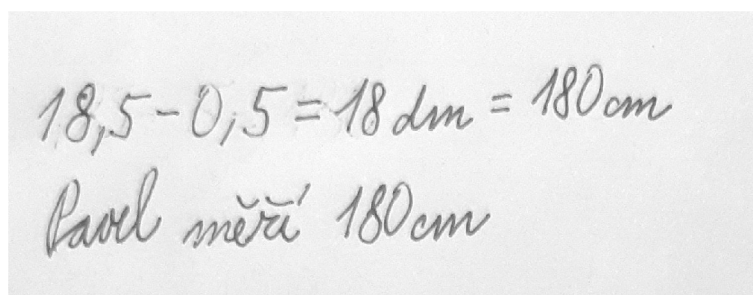 18,5-0,5=18dm = 180cm
Pavel měří 180cm